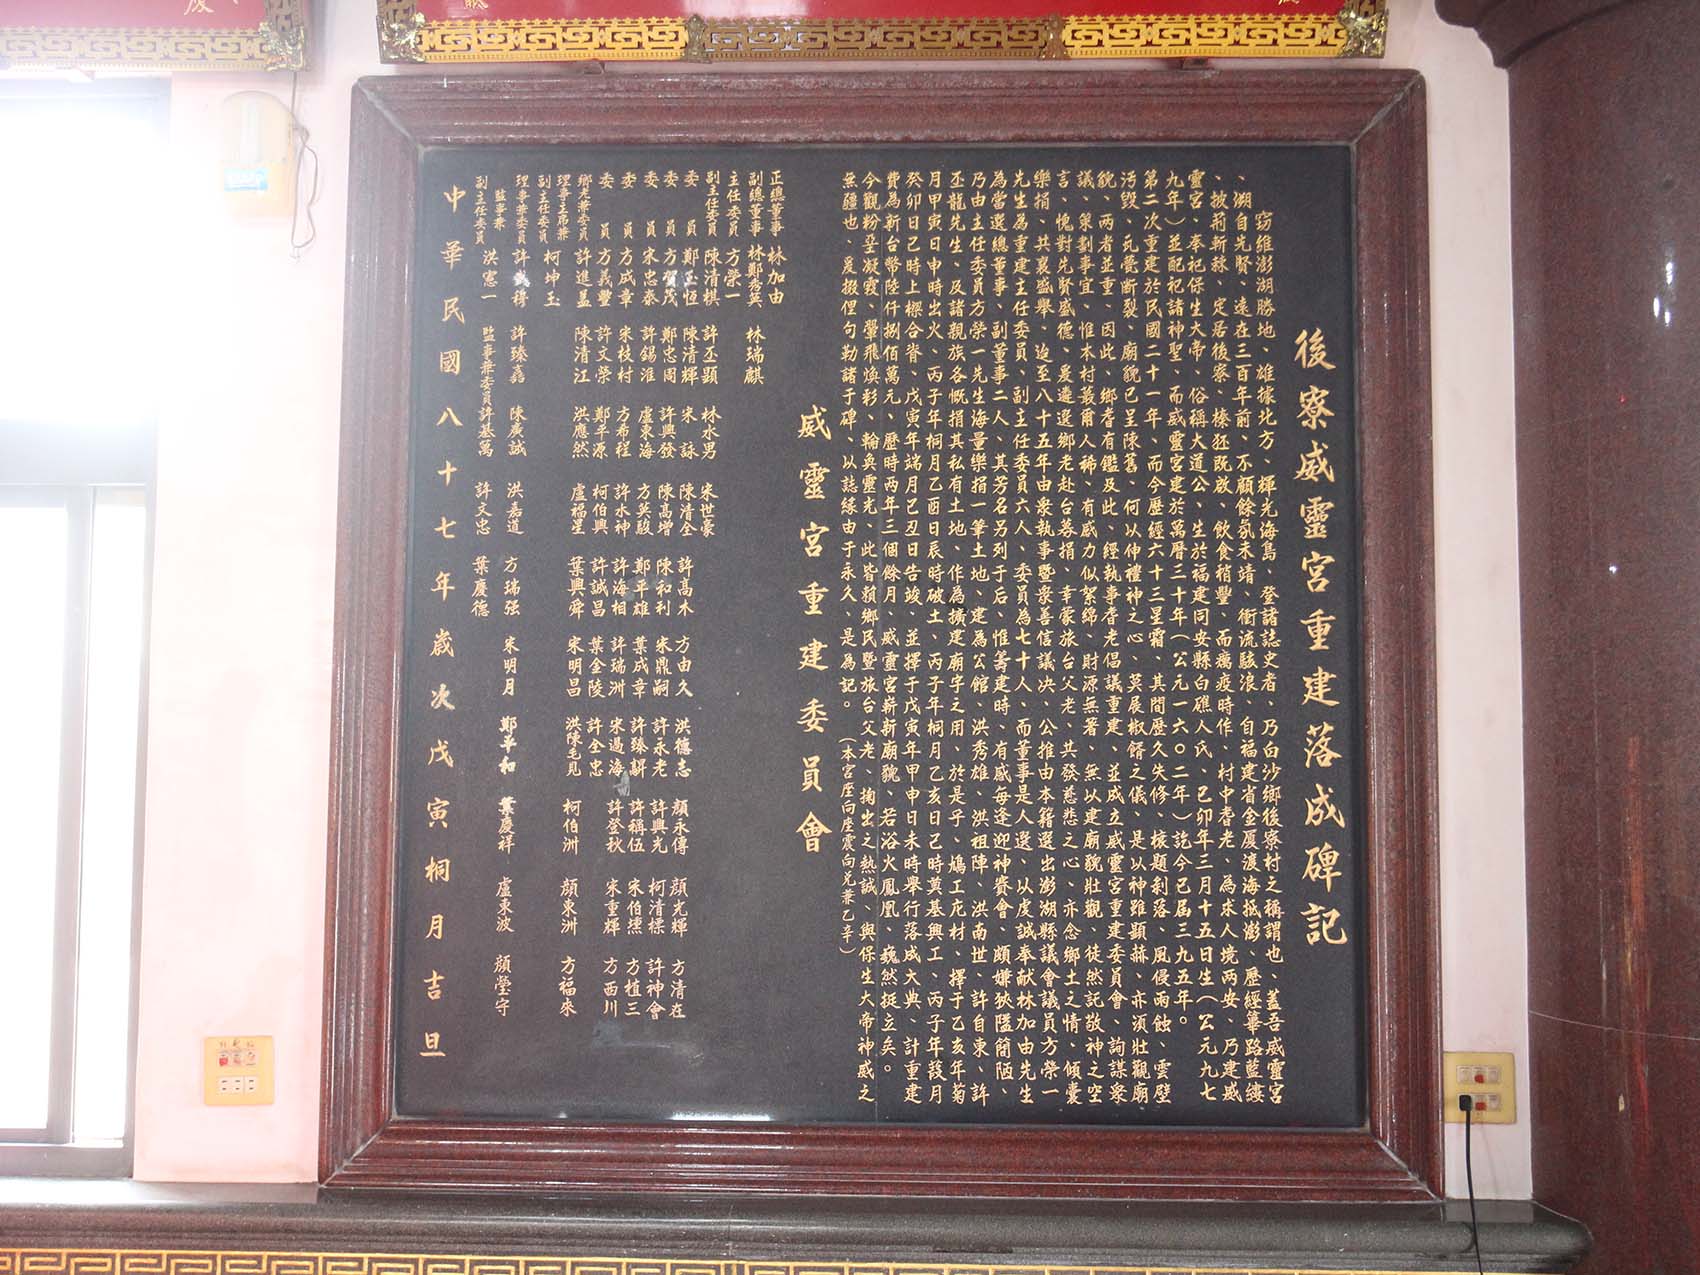 後寮威靈宮重建落成碑記
窃維澎湖勝地、雄據北方、輝光海島、登諸誌史者、乃白沙鄉後寮村之稱謂也、蓋吾威靈宮
、溯自先賢、遠在三百年前、不顧餘氛未靖、衝流駭浪、自福建省金厦渡海抵澎、歷經篳路藍縷
、披荊斬棘、定居後寮、榛狉既啟、飲食稍豐、而癘疫時作、村中耆老、為求人境兩安、乃建威
靈宮、奉祀保生大帝、俗稱大道公、生於福建同安縣白礁人氏、己卯年三月十五日生（公元九七
九年）並配祀諸神聖、而威靈宮建於萬曆三十年（公元一六０二年）訖今已屆三九五年。
第二次重建於民國二十一年、而今歷經六十三星霜、其間歷久失修、榱題剝落、風侵雨蝕、雲壁
污毀、瓦甍断裂、廟貌已呈陳舊、何以伸禮神之心、莫展椒醑之儀、是以神雖顯赫、亦須壯觀廟
貌、兩者並重、因此、鄉耆有鑑及此、經執事耆老倡議重建、並成立威靈宮重建委員會、詢謀衆
議、策劃事宜、惟本村蕞爾人稀、有感力似絮綿、財源無著、無以建廟貌壯觀、徒然託敬神之空
言、愧對先賢盛德、爰遴選鄉老赴台募捐、幸蒙旅台父老、共發慈悲之心、亦念鄉土之情、傾囊
樂捐、共襄盛舉、迨至八十五年由衆執事暨衆善信議决、公推由本籍選出澎湖縣議會議員方榮一
先生為重建主任委員、副主任委員六人、委員為七十人、而董事是人選、以虔誠奉献林加由先生
為當選總董事、副董事二人、其芳名另列于后、惟籌建時、有感每逢迎神賽會、頗嫌狹隘簡陋、
乃由主任委員方榮一先生海量樂捐一筆土地、建為公館、洪秀雄、洪祖陣、洪南世、許自東、許
丕龍先生、及諸親族各慨捐其私有土地、作為擴建廟宇之用、於是乎、鳩工庀材、擇于乙亥年菊
月甲寅日申時出火、丙子年桐月乙酉日辰時破土、丙子年桐月乙亥日己時奠基興工、丙子年葭月
癸卯日己時上樑合脊、戊寅年端月己丑日告竣、並擇于戊寅年甲申日未時舉行落成大典、計重建
費為新台幣陸仟捌佰萬元、歷時兩年三個餘月、威靈宮嶄新廟貌、若浴火鳳凰、巍然挺立矣。
今觀粉堊凝霞、翬飛煥彩、輪奐靈光、此皆賴鄉民暨旅台父老、掬出之熱誠、與保生大帝神威之
無疆也、爰掇俚句勒諸于碑、以誌緣由于永久、是為記。（本宮座向座震向兌兼乙辛）
威靈宮重建委員會
正總董事 林加由
副總董事 林鄭秀英 林瑞麒
主任委員 方榮一
副主任委員 陳清棋 許丕顯 林水男 宋世豪 許高木 方由久 洪德志 顏永傳 顏光輝 方清在
委員 鄭玉恒 陳清輝 宋詠 陳清全 陳和利 宋鼎嗣 許永老 許興光 柯清標 許神會
委員 方賀茂 鄭忠周 許興發 陳高增 鄭平雄 葉成章 許臻騏 許稱伍 宋伯㷍 方植三
委員 宋忠泰 許錫淮 盧東海 方英駿 許海相 許瑞洲 宋過海 許登秋 宋重輝 方西川
委員 方成章 宋枝村 方希程 許水神 許誠昌 葉金陵 許全忠
委員 方義豐 許文榮 鄭平源 柯伯興 葉興舜 宋明昌 洪陳毛見 柯伯洲 顏東洲 方福來
鄉老兼委員 許進益 陳清江 洪應然 盧福星
理事主席兼副主任委員 柯坤玉
理事兼委員 許成得 許臻鑫 陳廣誠 洪嘉道 方瑞强 宋明月 鄭平和 葉慶祥 盧東波 顏瑩守
監事兼副主任委員 洪憲一 監事兼委員 許基萬 許文忠 葉慶德
中華民國八十七年歲次戊寅桐月吉旦